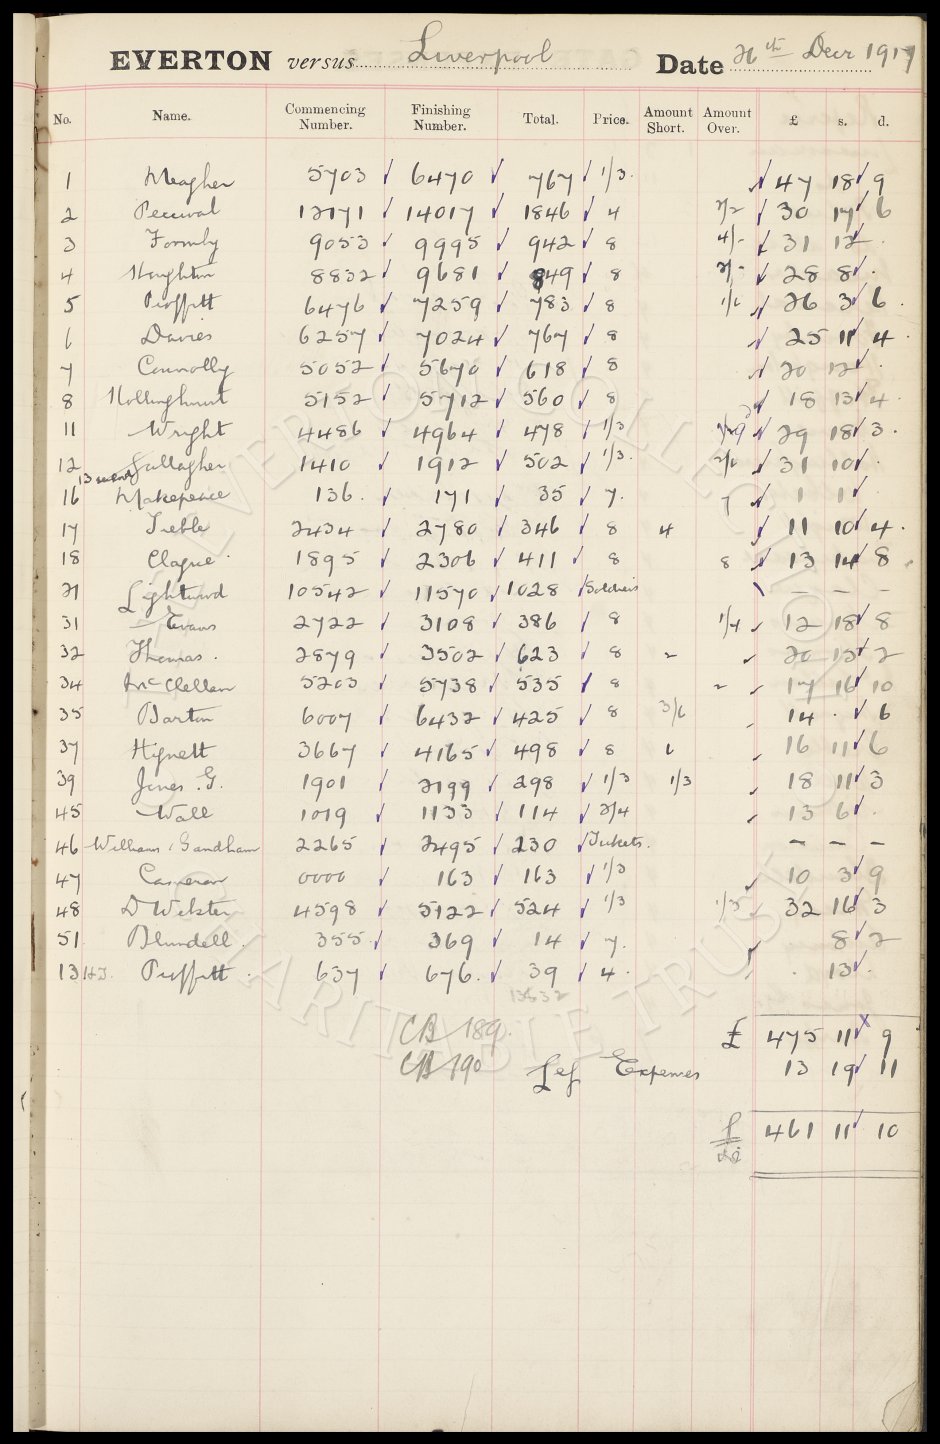 EVERTON versus Liverpool Date 26th Decr 1917
No. Name. Commencing Number. Finishing Number. Total. Price. Amount Short. Amount Over. £ s. d.
1 Meagher 5703 6470 767 1/3 £47 18 9
2 Percival 12171 14017 1846 4 2/2 30 17 6
3 Formby 9053 9995 942 8 4/- 31 12 .
4 Houghton 8832 9681 849 8 2/- 28 8 .
5 Proffitt 6476 7259 783 8 1/6 26 3 6
6 Davies 6257 7024 767 8 25 11 4
7 Connolly 5052 5670 618 8 20 12 .
8 Hollinghurst 5152 5712 560 8 18 13 4
11 Wright 4486 4964 478 1/3 29 18 3
12 Gallagher 1410 1912 502 1/3 2/6 31 10 .
16 Makepeace 136 171 35 7 7 1 1 .
17 Treble 2434 2780 346 8 4 11 10 4
18 Clague 1895 2306 411 8 8 13 14 8
21 Lightwood 10542 11570 1028 Soldiers - - -
31 Evans 2722 3108 386 8 1/4 12 18 8
32 Thomas 2879 3502 623 8 2 20 15 2
34 McClellan 5203 5738 535 8 2 17 16 10
35 Barton 6007 6432 425 8 3/6 14 . 6
37 Hignett 3667 4165 498 8 6 16 11 6
39 Jones. G. 1901 2199 298 1/3 1/3 18 11 3
45 Wall 1019 1133 114 2/4 13 6 .
46 Williams & Sandham 2265 2495 230 Tickets. - - -
47 Cameron 0000 163 163 1/3 10 3 9
48 D Webster 4598 5122 524 1/3 1/3 32 16 3
51 Blundell 355 369 14 7 8 2
13 H.T. Proffitt 637 676 39 4 . 13 .
13832
CB 189 £ 475 11 9
CB 190 Less Expenses 13 19 11
£ 461 11 10
EVERTON COLLECTION
CHARITABLE TRUST